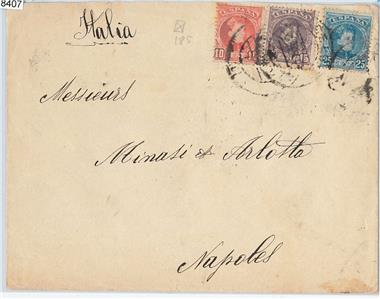 8407
Italia
185
ESPAÑA ESPAÑA ESPAÑA
10 10 15 25 25
Messieurs
Minasi & Arlotta
Napoles